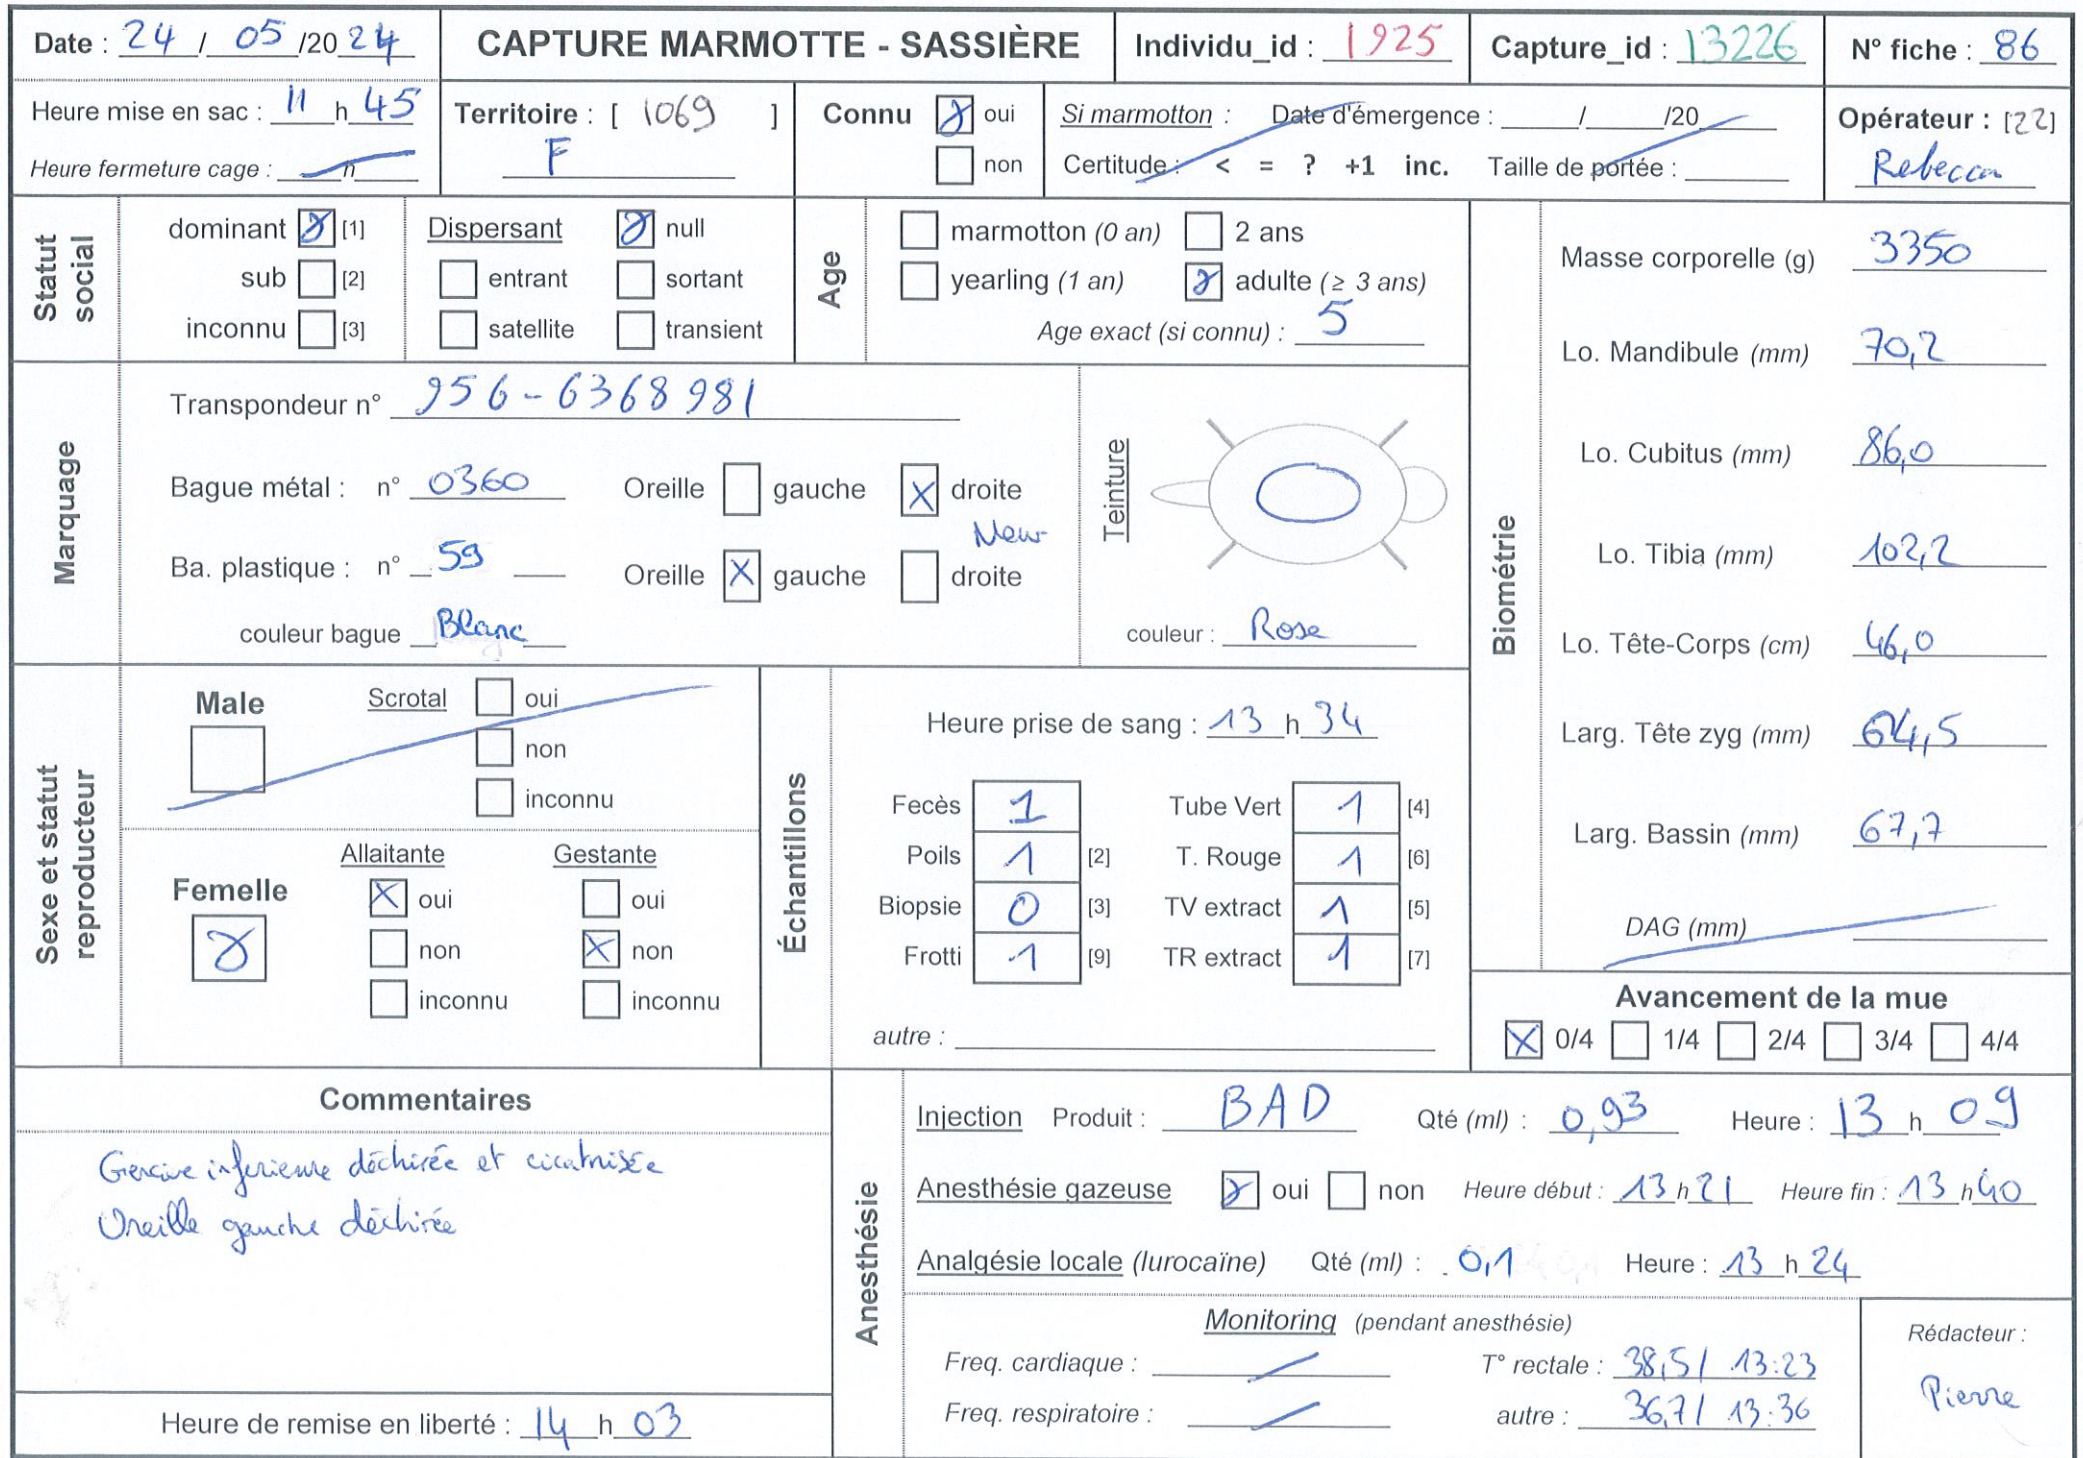 Date : 24 / 05 /20 24
CAPTURE MARMOTTE - SASSIÈRE
Individu_id : 1925
Capture_id : 13226
N° fiche : 86
Heure mise en sac : 11 h 45
Heure fermeture cage : h
Territoire : [ 1069 ]
F
Connu oui
non
Si marmotton : Date d'émergence : / /20
Certitude : < = ? +1 inc. Taille de portée :
Opérateur : [22]
Rebecca
Statut social
dominant [1]
sub [2]
inconnu [3]
Dispersant null
entrant sortant
satellite transient
Age
marmotton (0 an) 2 ans
yearling (1 an) adulte (≥ 3 ans)
Age exact (si connu) : 5
Marquage
Transpondeur n° 956-6368981
Bague métal : n° 0360 Oreille gauche X droite
New
Ba. plastique : n° 59 Oreille X gauche droite
couleur bague Blanc
Teinture
couleur : Rose
Biométrie
Masse corporelle (g) 3350
Lo. Mandibule (mm) 70,2
Lo. Cubitus (mm) 86,0
Lo. Tibia (mm) 102,2
Lo. Tête-Corps (cm) 46,0
Larg. Tête zyg (mm) 64,5
Larg. Bassin (mm) 67,7
DAG (mm)
Sexe et statut reproducteur
Male
Scrotal oui
non
inconnu
Femelle
Allaitante
X oui
non
inconnu
Gestante
oui
X non
inconnu
Échantillons
Heure prise de sang : 13 h 34
Fecès 1 Tube Vert 1 [4]
Poils 1 [2] T. Rouge 1 [6]
Biopsie 0 [3] TV extract 1 [5]
Frotti 1 [9] TR extract 1 [7]
autre :
Avancement de la mue
X 0/4 1/4 2/4 3/4 4/4
Commentaires
Gencive inferieure déchirée et cicatrisée
Oreille gauche déchirée
Heure de remise en liberté : 14 h 03
Anesthésie
Injection Produit : BAD Qté (ml) : 0,93 Heure : 13 h 09
Anesthésie gazeuse oui non Heure début : 13 h 21 Heure fin : 13 h 40
Analgésie locale (lurocaïne) Qté (ml) : 0,1 Heure : 13 h 24
Monitoring (pendant anesthésie)
Freq. cardiaque : T° rectale : 38,5 / 13:23
Freq. respiratoire : autre : 36,7 / 13:36
Rédacteur :
Pierre